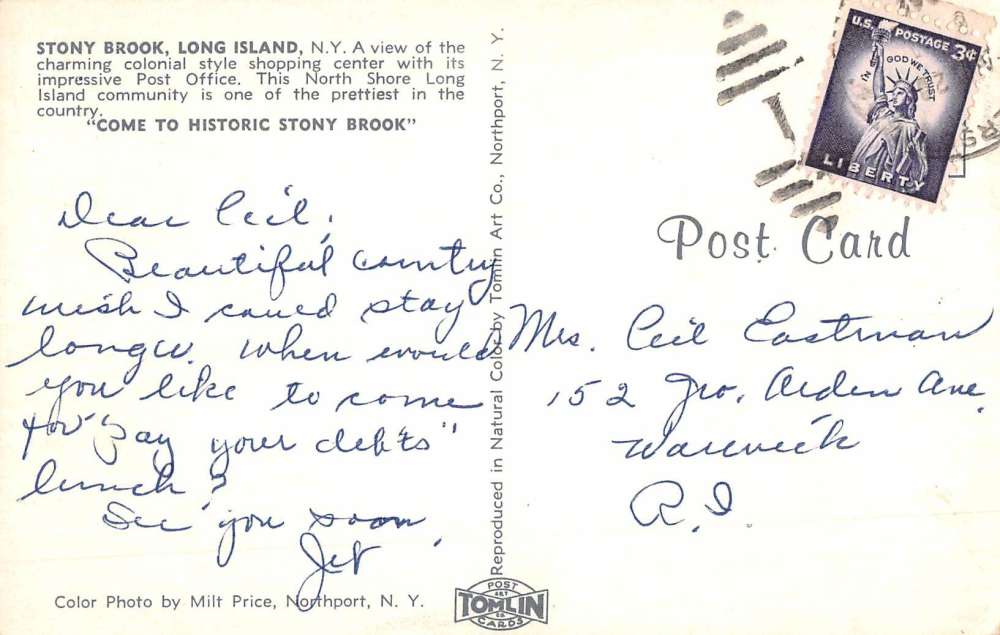 STONY BROOK, LONG ISLAND, N.Y. A view of the
charming colonial style shopping center with its
impressive Post Office. This North Shore Long
Island community is one of the prettiest in the
country.
"COME TO HISTORIC STONY BROOK"
Dear Ceil,
Beautiful country
wish I could stay
longer. When would
you like to come
for "pay your debts"
lunch?
See you soon,
Color Photo by Milt Price, Northport, N. Y.
Reproduced in Natural Color by Tomlin Art Co., Northport, N. Y.
POST
ART
TOMLIN
CO
CARDS
U.S. POSTAGE 3¢
IN GOD WE TRUST
LIBERTY
Post Card
Mrs. Ceil Eastman
152 Arden Ave.
Warwick
R.I.